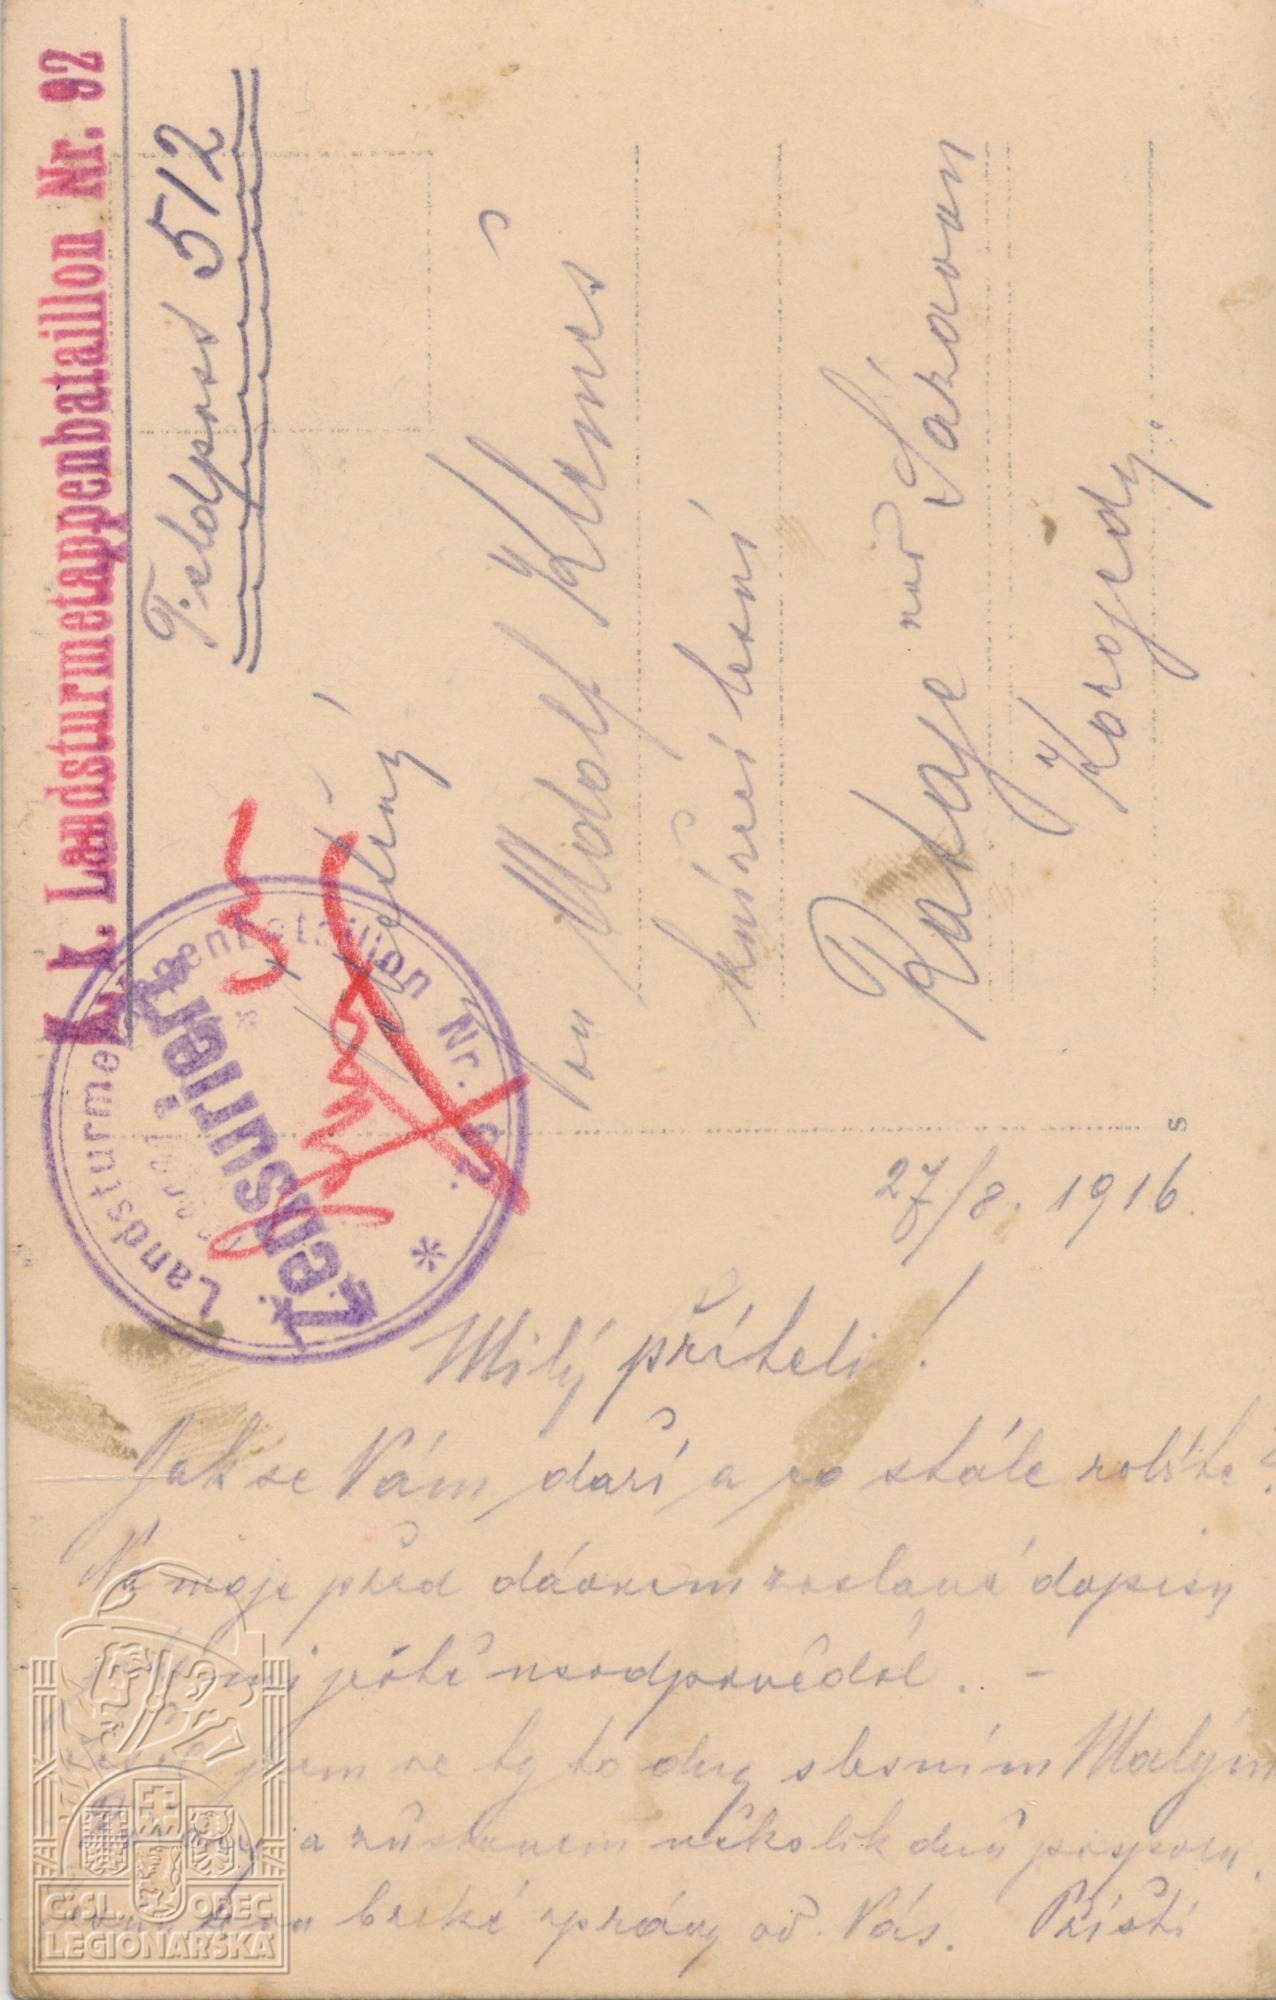 K. k. Landsturmetappenbataillon Nr. 92
Feldpost 512
Landsturmetappenbataillon Nr. 92.
Zensuriert
Ctěný
Pan Adolf Klimeš
knížecí lesní
Rataje nad Sázavou
Korojedy.
27/8. 1916.
Milý příteli!
Jak se Vám daří a co stále robíte?
Na moje před dávnem zaslané dopisy
mi ještě neodpověděl. –
jsem se tyto dny s lesním Malým
a zůstanem několik dnů pospolu.
brzké zprávy od Vás. Příští
S
ČSL. OBEC
LEGIONÁŘSKÁ